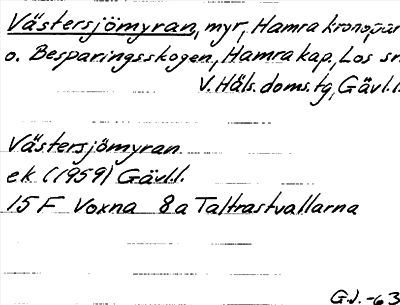 Västersjömyran, myr, Hamra kronopar
o. Besparingsskogen, Hamra kap., Los sn
V. Häls. doms. tg, Gävl. l.
Västersjömyran
ek (1959) Gävl.l.
15 F Voxna 8a Taltrastvallarna
G.J. -63